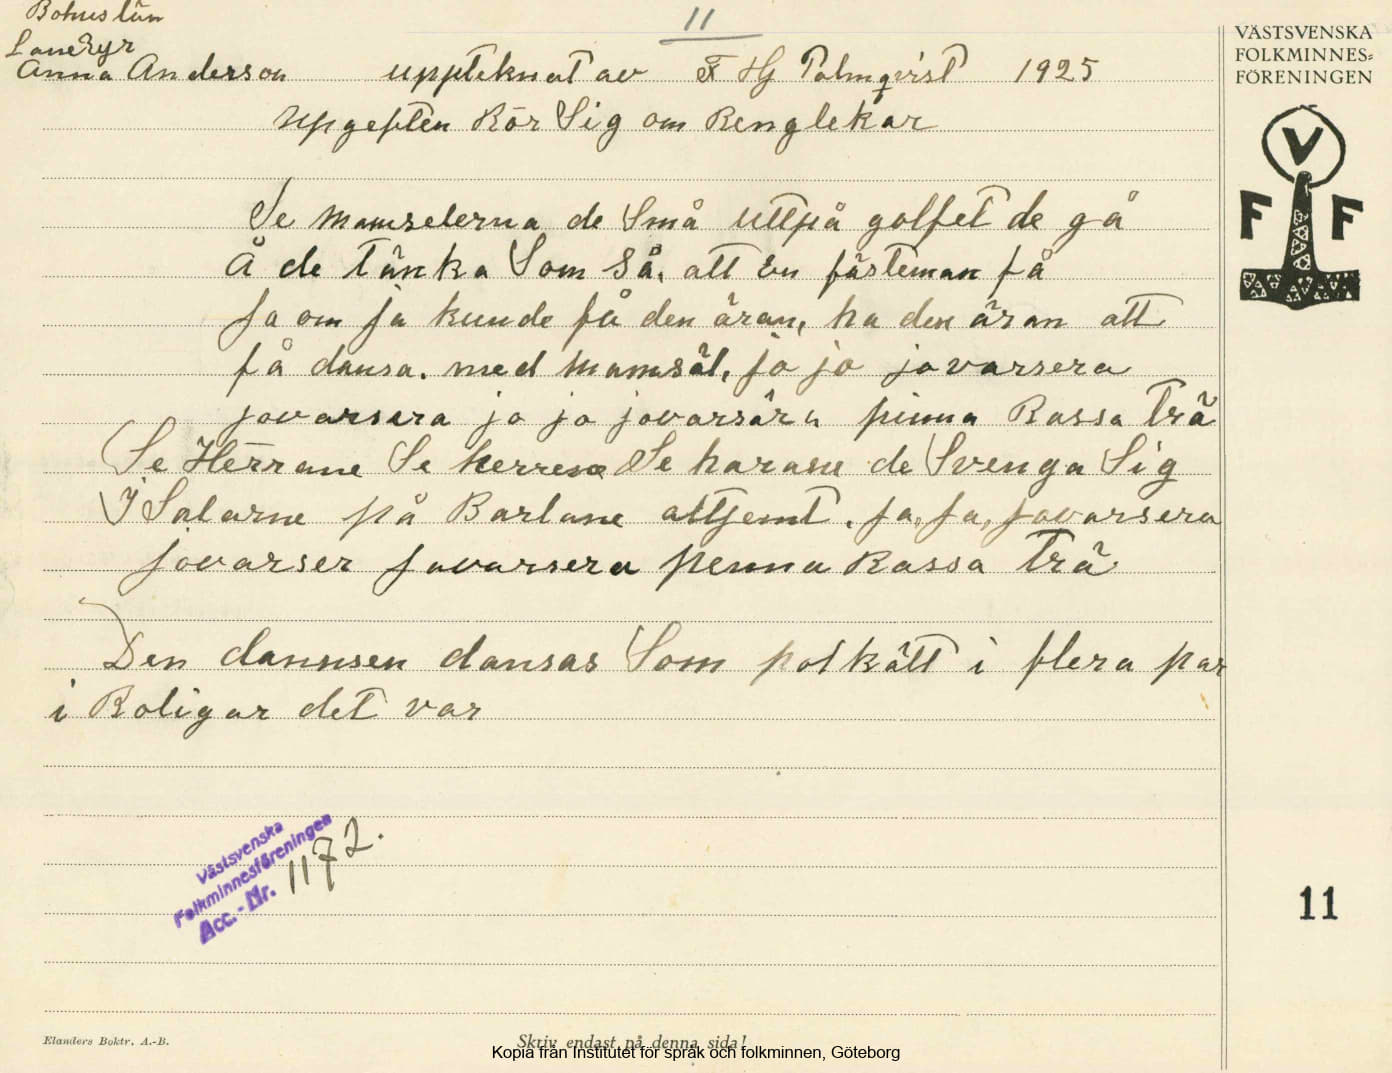 11
Bohuslän
Laneryr
Anna Anderson uppteknat av F Hj Palmqvist 1925
Upgepten Rör Sig om Renglekar
Se Mamselerna de Små Uttpå golfet de gå
Å de tänka Som Så, att En fästeman få
Ja om ja kunde få den äran, ha den äran att
få dansa. med Mamsäl, jo jo jovarsera
jovarsera jo jo jovarsära pinna Rassa trä
Se Herrane Se herrene Se harane de Svenga Sig
I Salarne på Barlane attjemt. Ja, Ja, Javarsera
jovarser Javarsera penna Rassa Trä
Den dannsen dansas Som polkätt i flera par
i Roligar det var
Västsvenska
Folkminnesföreningen
Acc.-Nr. 1172.
VÄSTSVENSKA
FOLKMINNES-
FÖRENINGEN
V
F F
11
Elanders Boktr. A.-B.
Skriv endast på denna sida!
Kopia från Institutet för språk och folkminnen, Göteborg